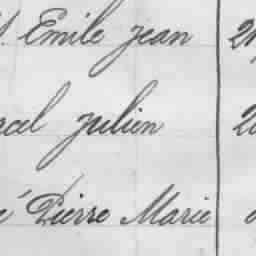 Emile Jean
cel Julien
é Pierre Marie